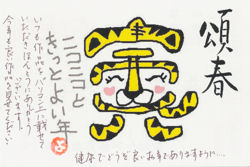 頌春
ニコニコと
きっとよい年
いつも作品をパソコンに載せて
いただきほんとうにありがとう
ございます
今年も良い作品を見せてください
健康でどうぞ良いお年でありますように…